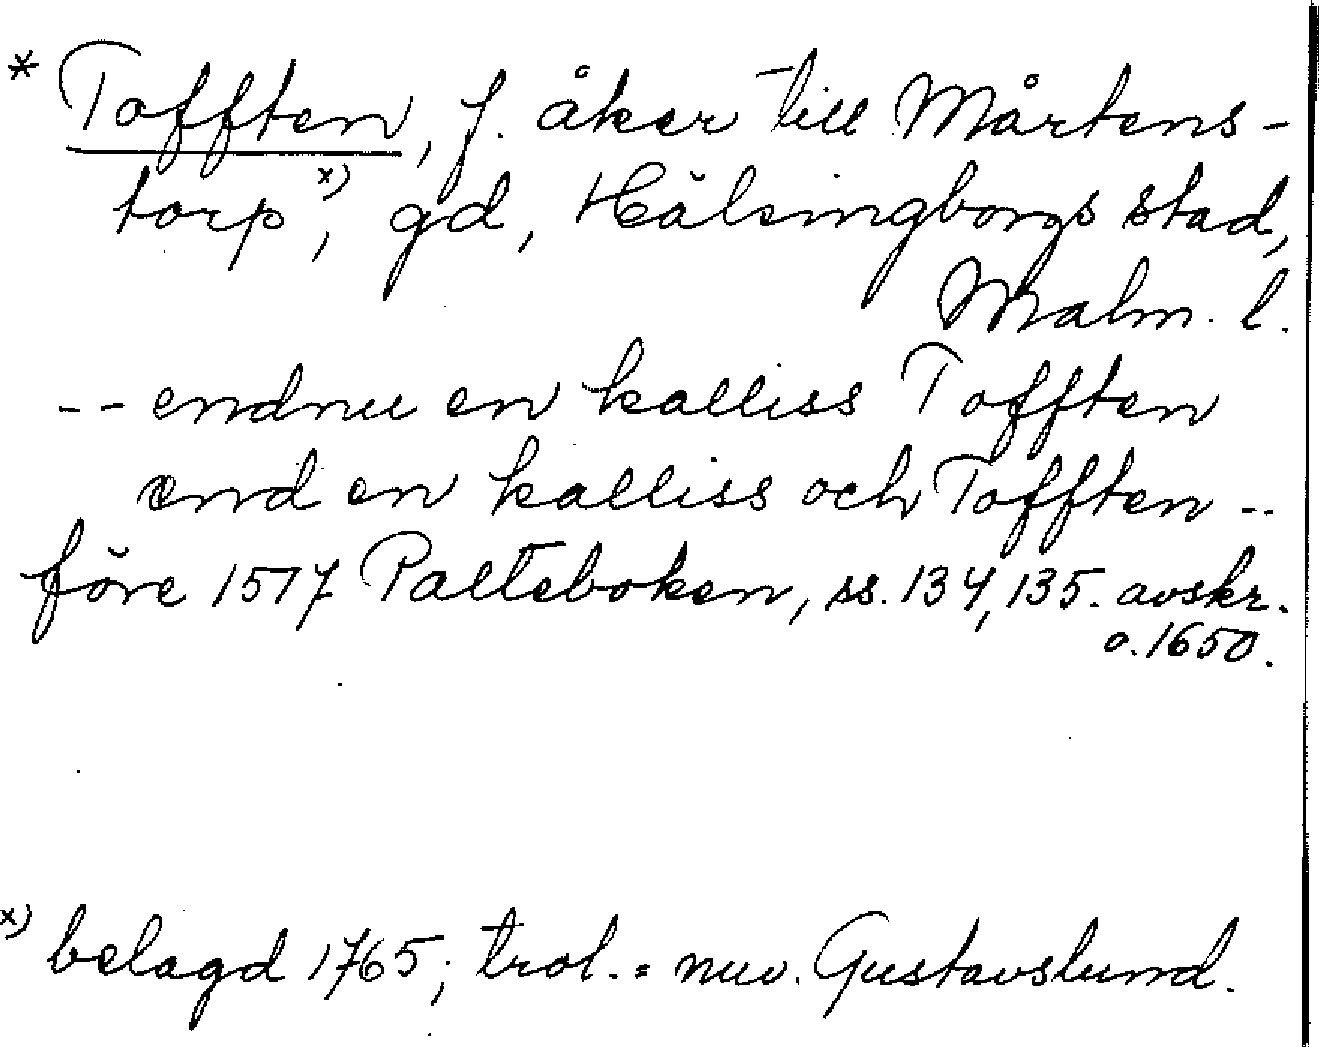 * Tofften, f. åker till Mårtens-
torp x), gd, Hälsingborgs stad,
Malm. l.
-- endnu en kalliss Tofften
end en kalliss och Tofften --
före 1517 Palteboken, ss. 134, 135. avskr.
o. 1650.
x) belagd 1765; trol. = nuv. Gustavslund.